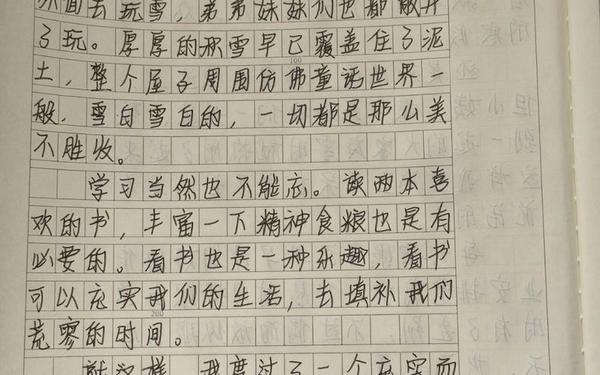 外面去玩雪，弟弟妹妹们也都敞开
了玩。厚厚的积雪早已覆盖住了泥
100
土，整个屋子周围仿佛童话世界一
般，雪白雪白的，一切都是那么美
不胜收。
学习当然也不能忘。读两本喜
欢的书，丰富一下精神食粮也是有
必要的。看书也是一种乐趣，看书
可以充实我们的生活，去填补我们
200
荒零的时间。
就这样，我度过了一个充实而